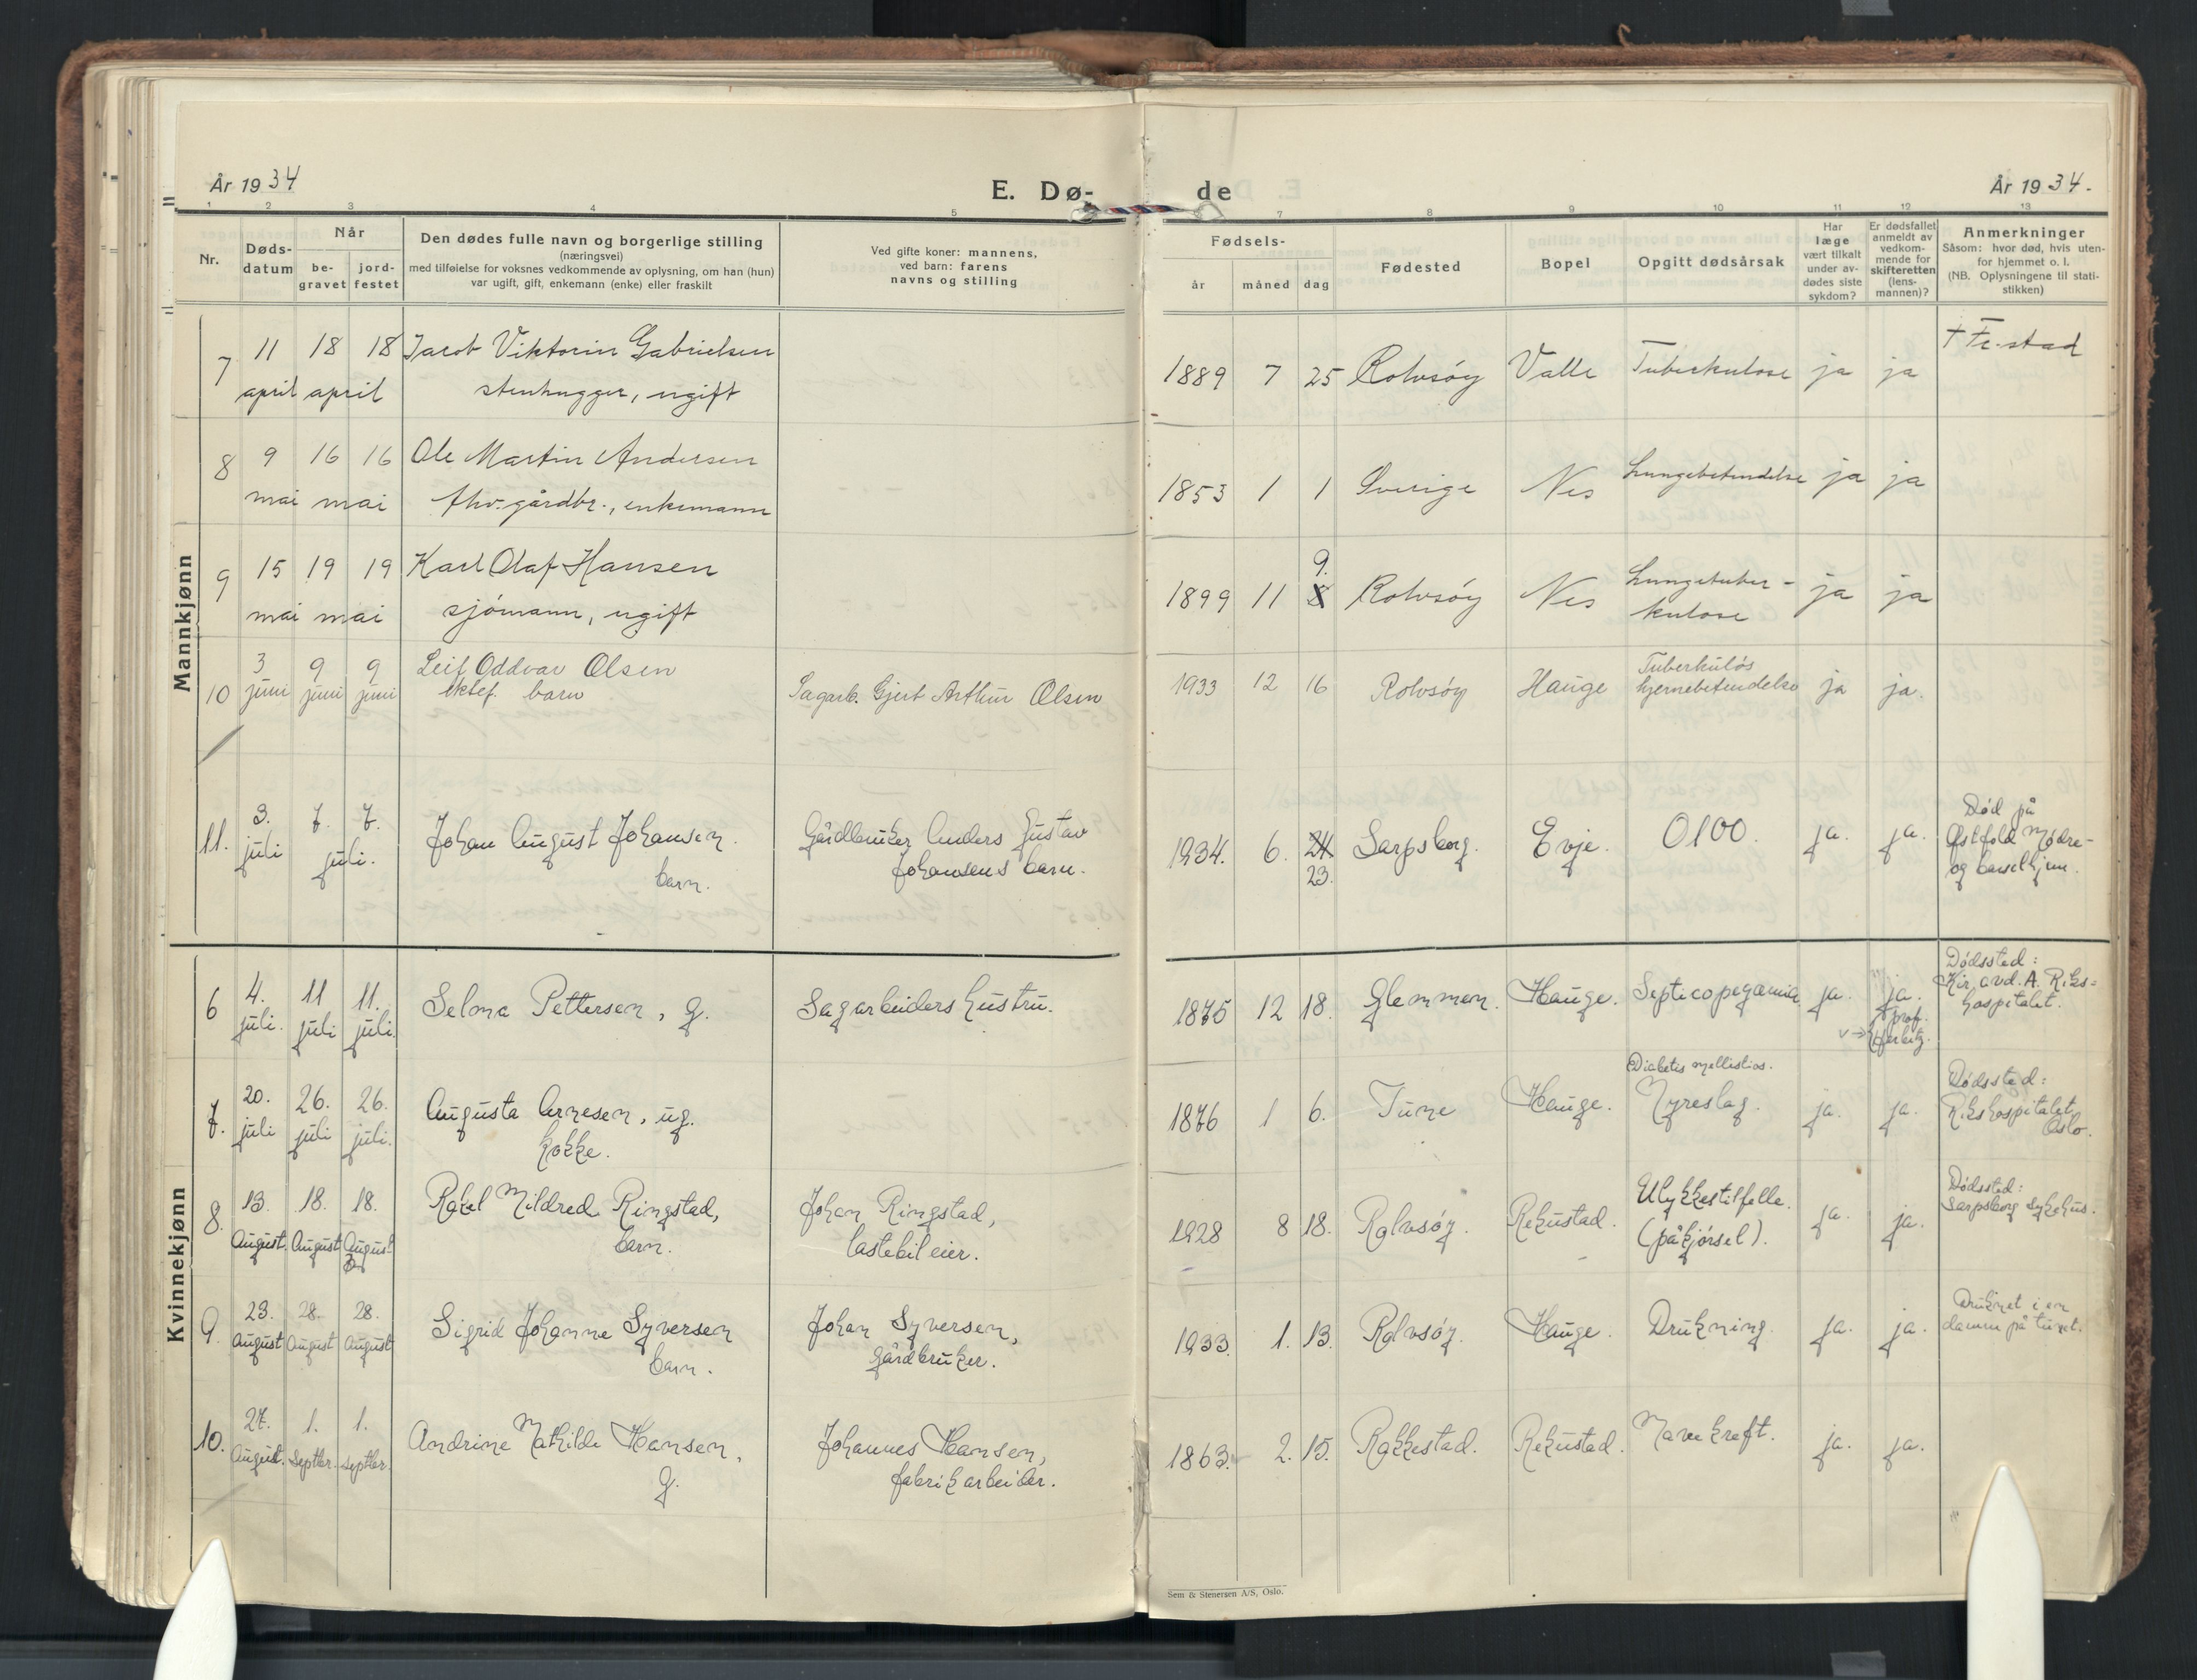 År 1934
E. Dø-
de
År 1934.
1 2 3 4 5
7 8 9 10 11 12 13
Nr.
Døds-
datum
Når
be-
gravet
jord-
festet
Den dødes fulle navn og borgerlige stilling
(næringsvei)
med tilføielse for voksnes vedkommende av oplysning, om han (hun)
var ugift, gift, enkemann (enke) eller fraskilt
Ved gifte koner: mannens,
ved barn: farens
navns og stilling
Fødsels-
år måned dag
Fødested
Bopel
Opgitt dødsårsak
Har
læge
vært tilkalt
under av-
dødes siste
sykdom?
Er dødsfallet
anmeldt av
vedkom-
mende for
skifteretten
(lens-
mannen)?
Anmerkninger
Såsom: hvor død, hvis uten-
for hjemmet o. l.
(NB. Oplysningene til stati-
stikken)
Mannkjønn
7
11
april
18 18
april
Jacob Viktorin Gabrielsen
stenhugger, ugift
1889 7 25 Rolvsøy Valle Tuberkulose ja ja
† Fr.stad
8
9
mai
16 16
mai
Ole Martin Andersen
fhv. gårdbr., enkemann
- -
1853 1 1 Sverige Nes Lungebetendelse ja ja
9
15
mai
19 19
mai
Karl Olaf Hansen
sjómann, ugift
9.
1899 11 8 Rolvsøy Nes Lungetuber-
kulose
ja ja
10
3
juni
9
juni
9
juni
Leif Oddvar Olsen
ektef. barn
Sagarb. Gjert Arthur Olsen
1933 12 16 Rolvsøy Hauge
Tuberkuløs
hjernebetendelse
ja ja.
11.
3.
juli
7. 7.
juli.
Johan August Johansen.
barn.
Gårdbruker Anders Gustav
Johansens barn.
1934. 6. 24
23.
Sarpsborg. Evje. 0100. ja. ja.
Død på
Østfold Mødre-
og barselhjem.
Kvinnekjønn
6
4.
juli.
11
juli
11.
juli.
Selma Pettersen, g.
Sagarbeiders hustru.
1875 12 18. Glemmen. Hauge. Septicopyæmia ja. ja.
prof.
v→ Harbitz.
Dødssted:
Kir. avd. A. Riks-
hospitalet.
7.
20.
juli
26.
juli
26.
juli.
Augusta Arnesen, ug.
kokke.
-
1876 1 6. Tune Hauge.
Diabetes mellistios.
Nyreslag. ja. ja.
Dødssted:
Rikshospitalet,
Oslo.
8.
13.
August.
18.
August
18.
August
Rakel Mildred Ringstad,
barn.
Johan Ringstad,
lastebileier.
1928 8 18. Rolvsøy. Rekustad.
Ulykkestilfelle.
(påkjørsel).
ja. ja.
Dødssted:
Sarpsborg Sykehus.
9.
23.
August
28.
August
28.
August
Sigrid Johanne Syversen
barn.
Johan Syversen,
gårdbruker.
1933. 1. 13. Rolvsøy. Hauge. Drukning. ja. ja.
Druknet i en
damm på tunet.
10.
27.
August.
1.
Septbr.
1.
Septbr.
Andrine Mathilde Hansen,
g.
Johannes Hansen,
fabrikarbeider.
1863. 2. 15. Rakkestad. Rekustad. Mavekreft. ja. ja.
Sem & Stenersen A/S, Oslo.